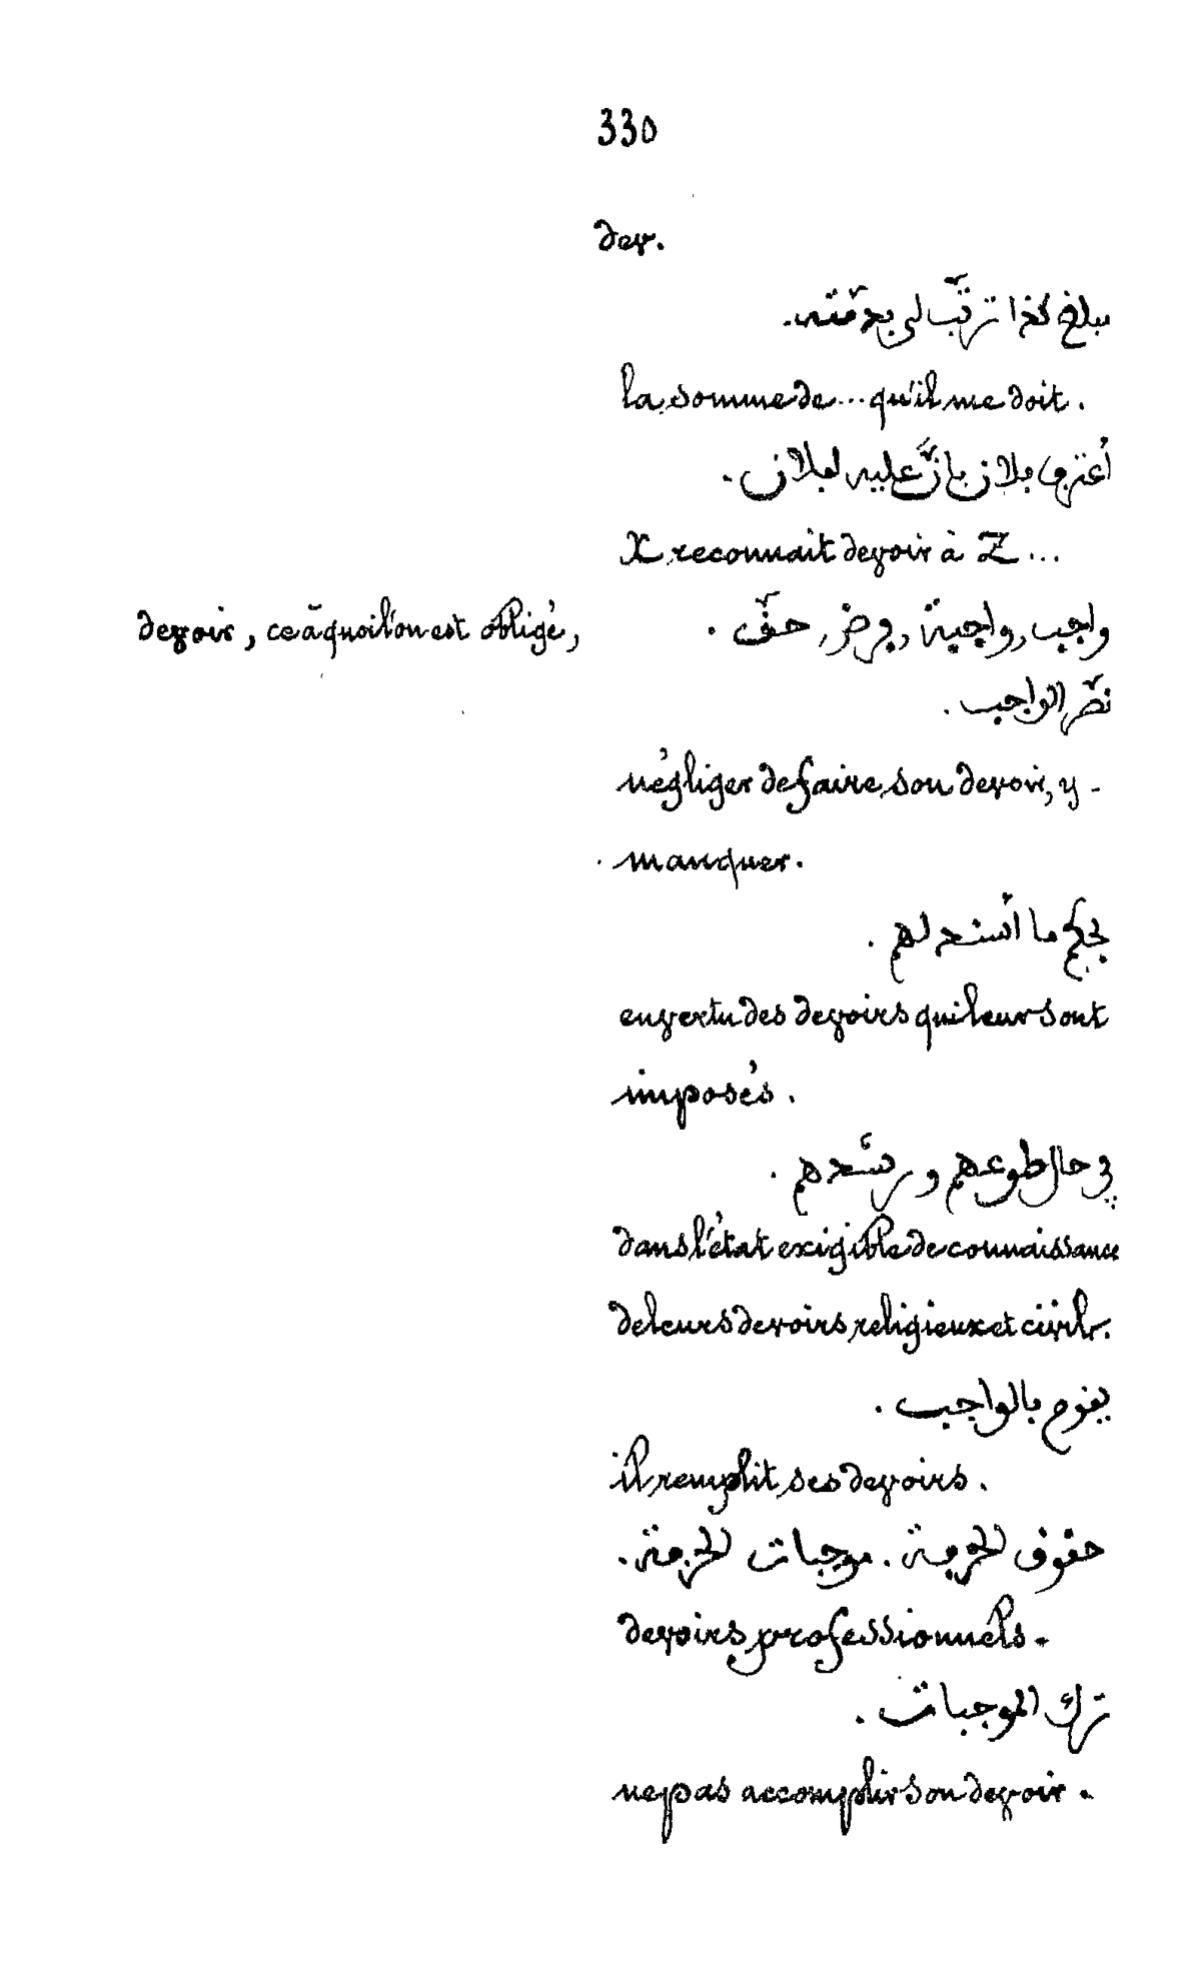 330
dev.
مبلغ كذا ترتّب لى بذمّته.
la somme de... qu'il me doit.
أعترف فلان بانّ عليه لفلان.
X reconnait devoir à Z...
devoir, ce à quoi l'on est obligé, واجب, واجبة, فرض, حقّ.
الواجب.
négliger de faire son devoir, y-
manquer.
بحكم ما أسند لهم.
en vertu des devoirs qui leur sont
imposés.
في حال طوعهم ورشدهم.
dans l'état exigible de connaissance
de leurs devoirs religieux et civils.
يقوم بالواجب.
il remplit ses devoirs.
حقوق الخدمة. موجبات الخدمة.
devoirs professionnels.
ترك الموجبات.
ne pas accomplir son devoir.